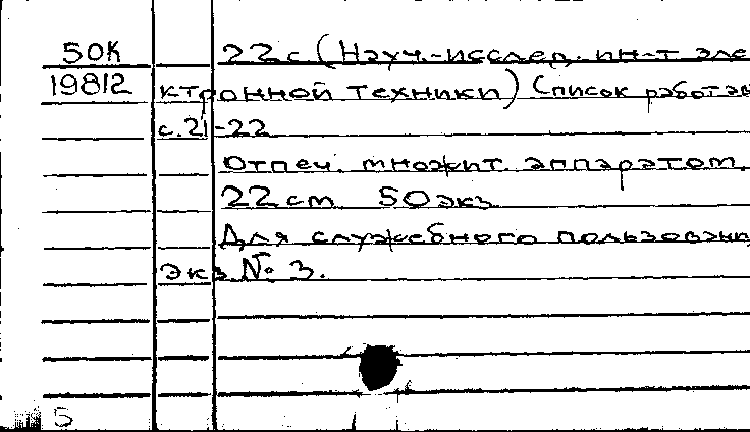 50К 22 с (Науч.-исслед. ин-т эле
19812 ктронной техники) Список работ ав
с.21-22
Отпеч. множит. аппаратом.
22 см 50 экз
Для служебного пользован
экз № 3.
5